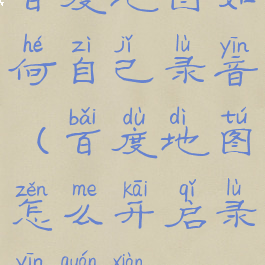 百度地图如
hé zì jǐ lù yīn
何自己录音
bǎi dù dì tú
（百度地图
zěn me kāi qǐ lù
怎么开启录
yīn quán xiàn